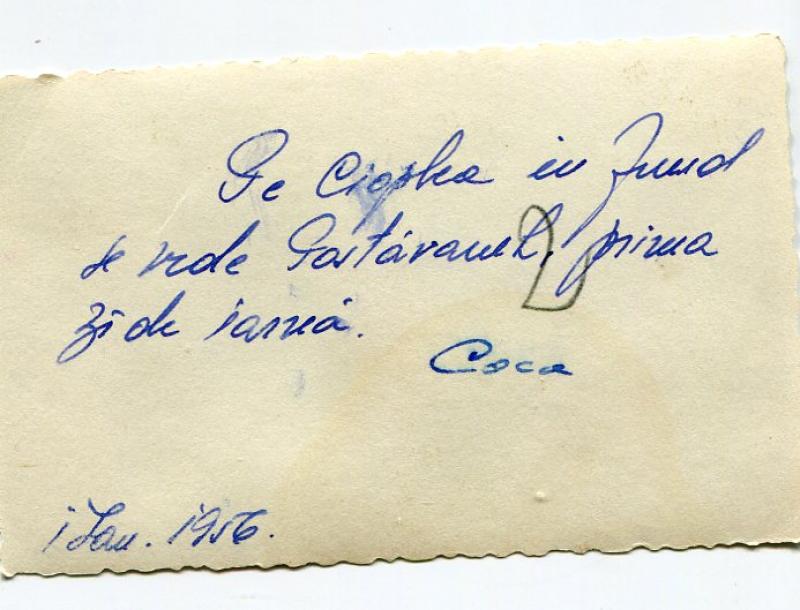 Pe Cioplea in fund
se vede Postăvarul, prima
zi de iarnă.
Coca
1 Ian. 1956.